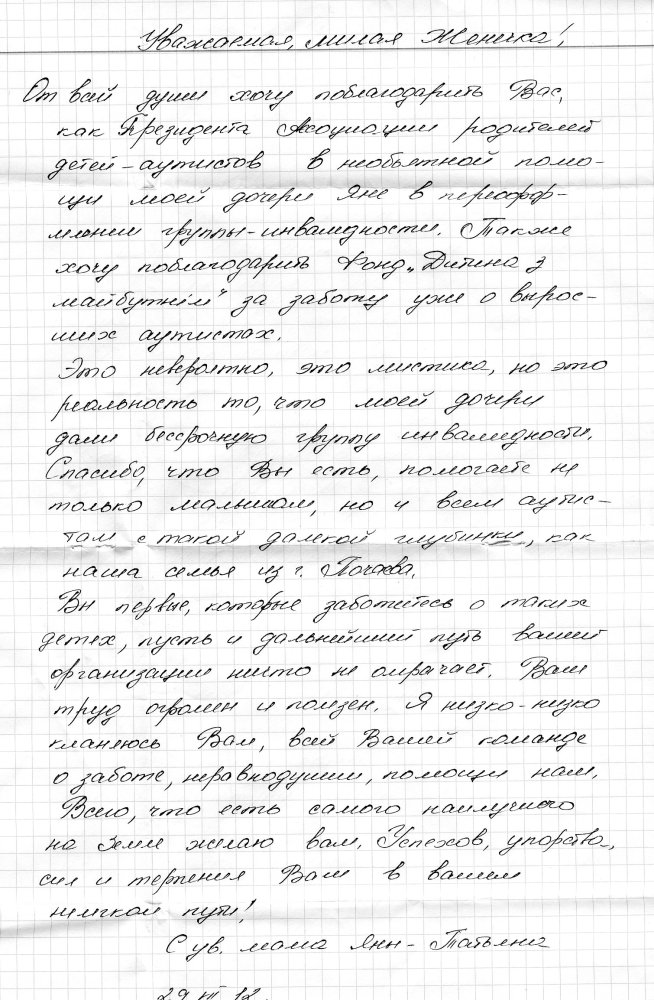 Уважаемая, милая Женечка!,
От всей души хочу поблагодарить Вас,
как Президента Ассоциации родителей
детей-аутистов в необъятной помо-
щи моей дочери Яне в переофор-
млении группы-инвалидности. Также
хочу поблагодарить Фонд „Дитина з
майбутнім" за заботу уже о вырос-
ших аутистах.
Это невероятно, это мистика, но это
реальность то, что моей дочери
дали бессрочную группу инвалидности.
Спасибо, что Вы есть, помогаете не
только малышам, но и всем аутис-
там с такой далекой глубинки, как
наша семья из г. Почаева.
Вы первые, которые заботитесь о таких
детях, пусть и дальнейший путь вашей
организации ничто не омрачает. Ваш
труд огромен и полезен. Я низко-низко
кланяюсь Вам, всей Вашей команде
о заботе, неравнодушии, помощи нам.
Всего, что есть самого наилучшего
на Земле желаю вам. Успехов, упорства,
сил и терпения Вам в вашем
нелегком пути!
С ув. мама Яны - Татьяна
29 III 12.